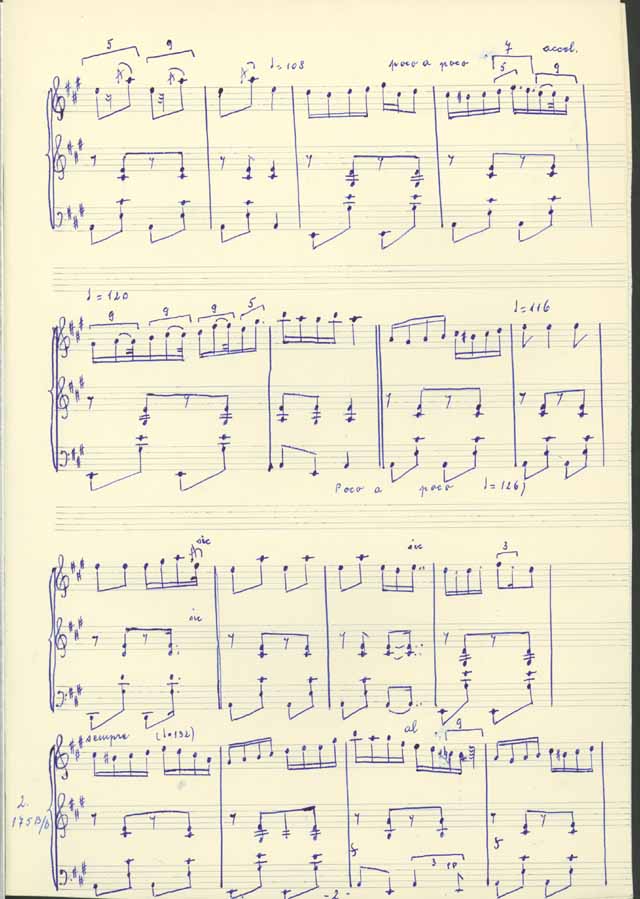 5 9 ♩=108 poco a poco 7 accel.
5 9
♩=120
9 9 9 5 ♩=116
Poco a poco ♩=126)
sic sic
3
sic
sempre (♩=132) al 9
2.
175B/b
3
-2-